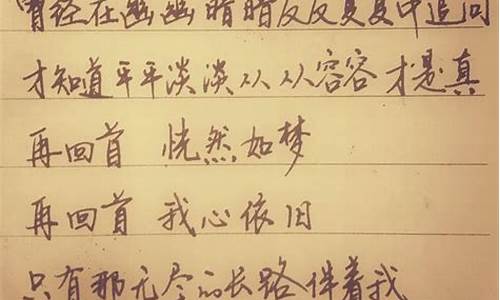 曾经在幽幽暗暗反反复复中追问
才知道平平淡淡从从容容才是真
再回首 恍然如梦
再回首 我心依旧
只有那无尽的长路伴着我